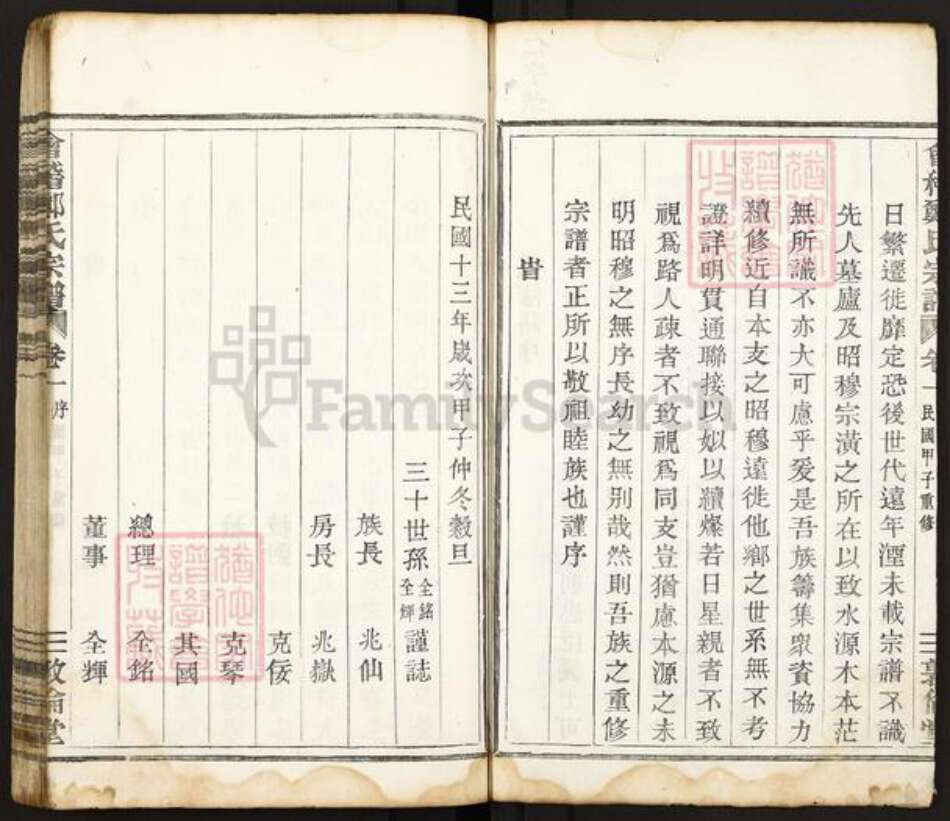 會稽鄭氏宗譜 卷一 民國甲子重修
日繁遷徙靡定恐後世代遠年湮未載宗譜不識
先人墓廬及昭穆宗潢之所在以致水源木本茫
無所識不亦大可慮乎爰是吾族籌集眾資協力
續修近自本支之昭穆遠徙他鄉之世系無不考
證詳明貫通聯接以姒以續燦若日星親者不致
視爲路人疎者不致視爲同支豈猶慮本源之未
明昭穆之無序長幼之無別哉然則吾族之重修
宗譜者正所以敬祖睦族也謹序
旹
民國十三年歲次甲子仲冬穀旦
三十世孫 全銘 全輝 謹誌
族長 兆仙
房長 兆嶽
克佞
克琴
其國
總理 全銘
董事 全輝
會稽鄭氏宗譜 卷一 序
FamilySearch